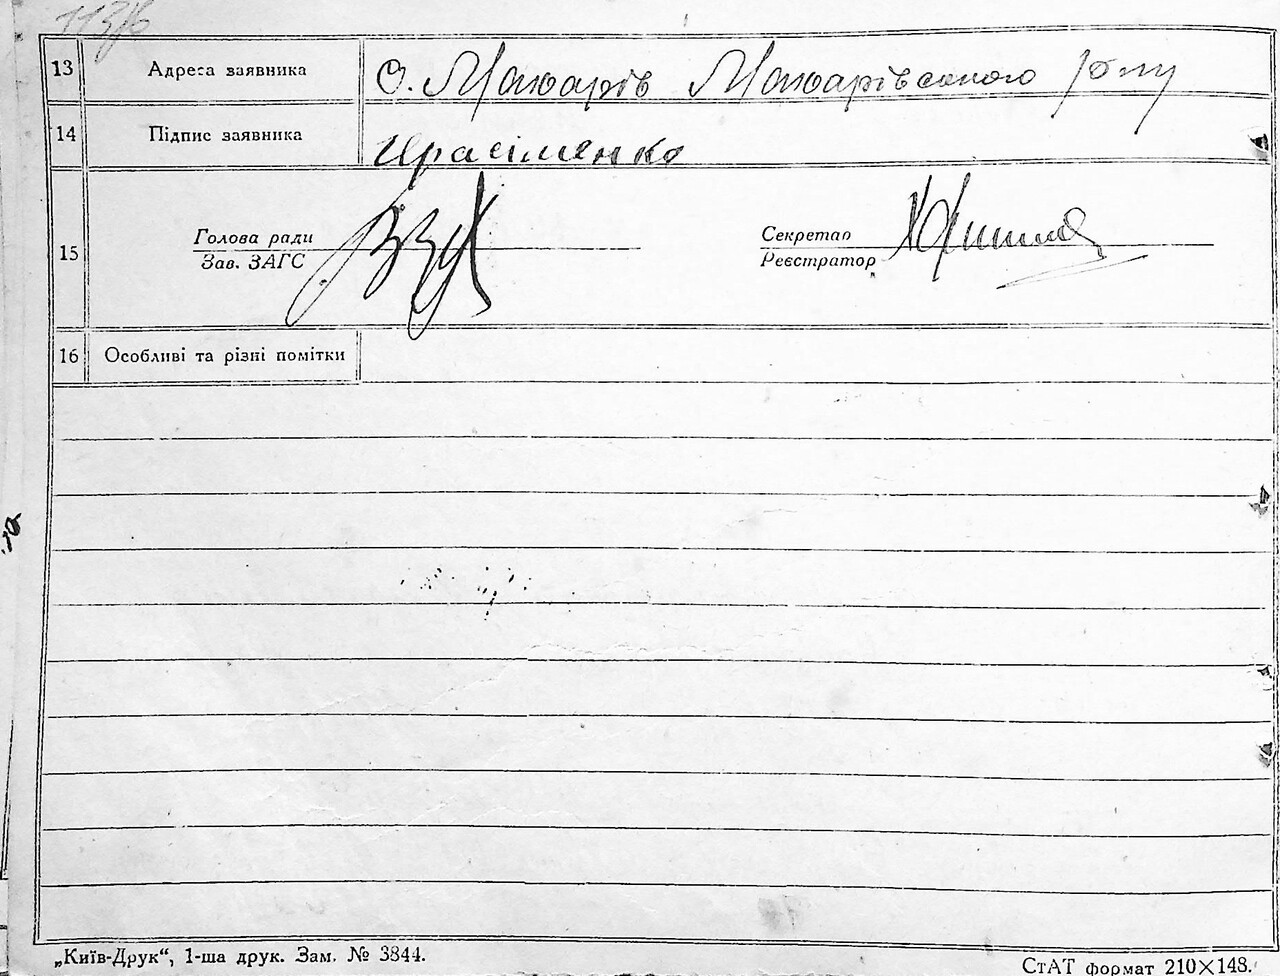 113/6
13 Адреса заявника С. Макарів Макарівського р-ну
14 Підпис заявника Герасіменко
15
Голова ради
Зав. ЗАГС
Секретар
Реєстратор
16 Особливі та різні помітки
„Київ-Друк“, 1-ша друк. Зам. № 3844.
СтАТ формат 210×148.